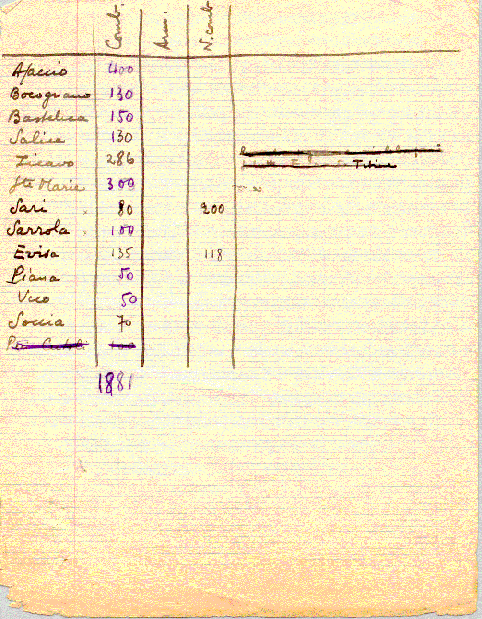 Comb. Arm. N. comb
Ajaccio 400
Bocognano 130
Bastelica 150
Salice 130
Zicavo 286
Ste Marie 300
Sari 80 200
Sarrola 100
Evisa 135 118
Piana 50
Vico 50
Soccia 70
1881